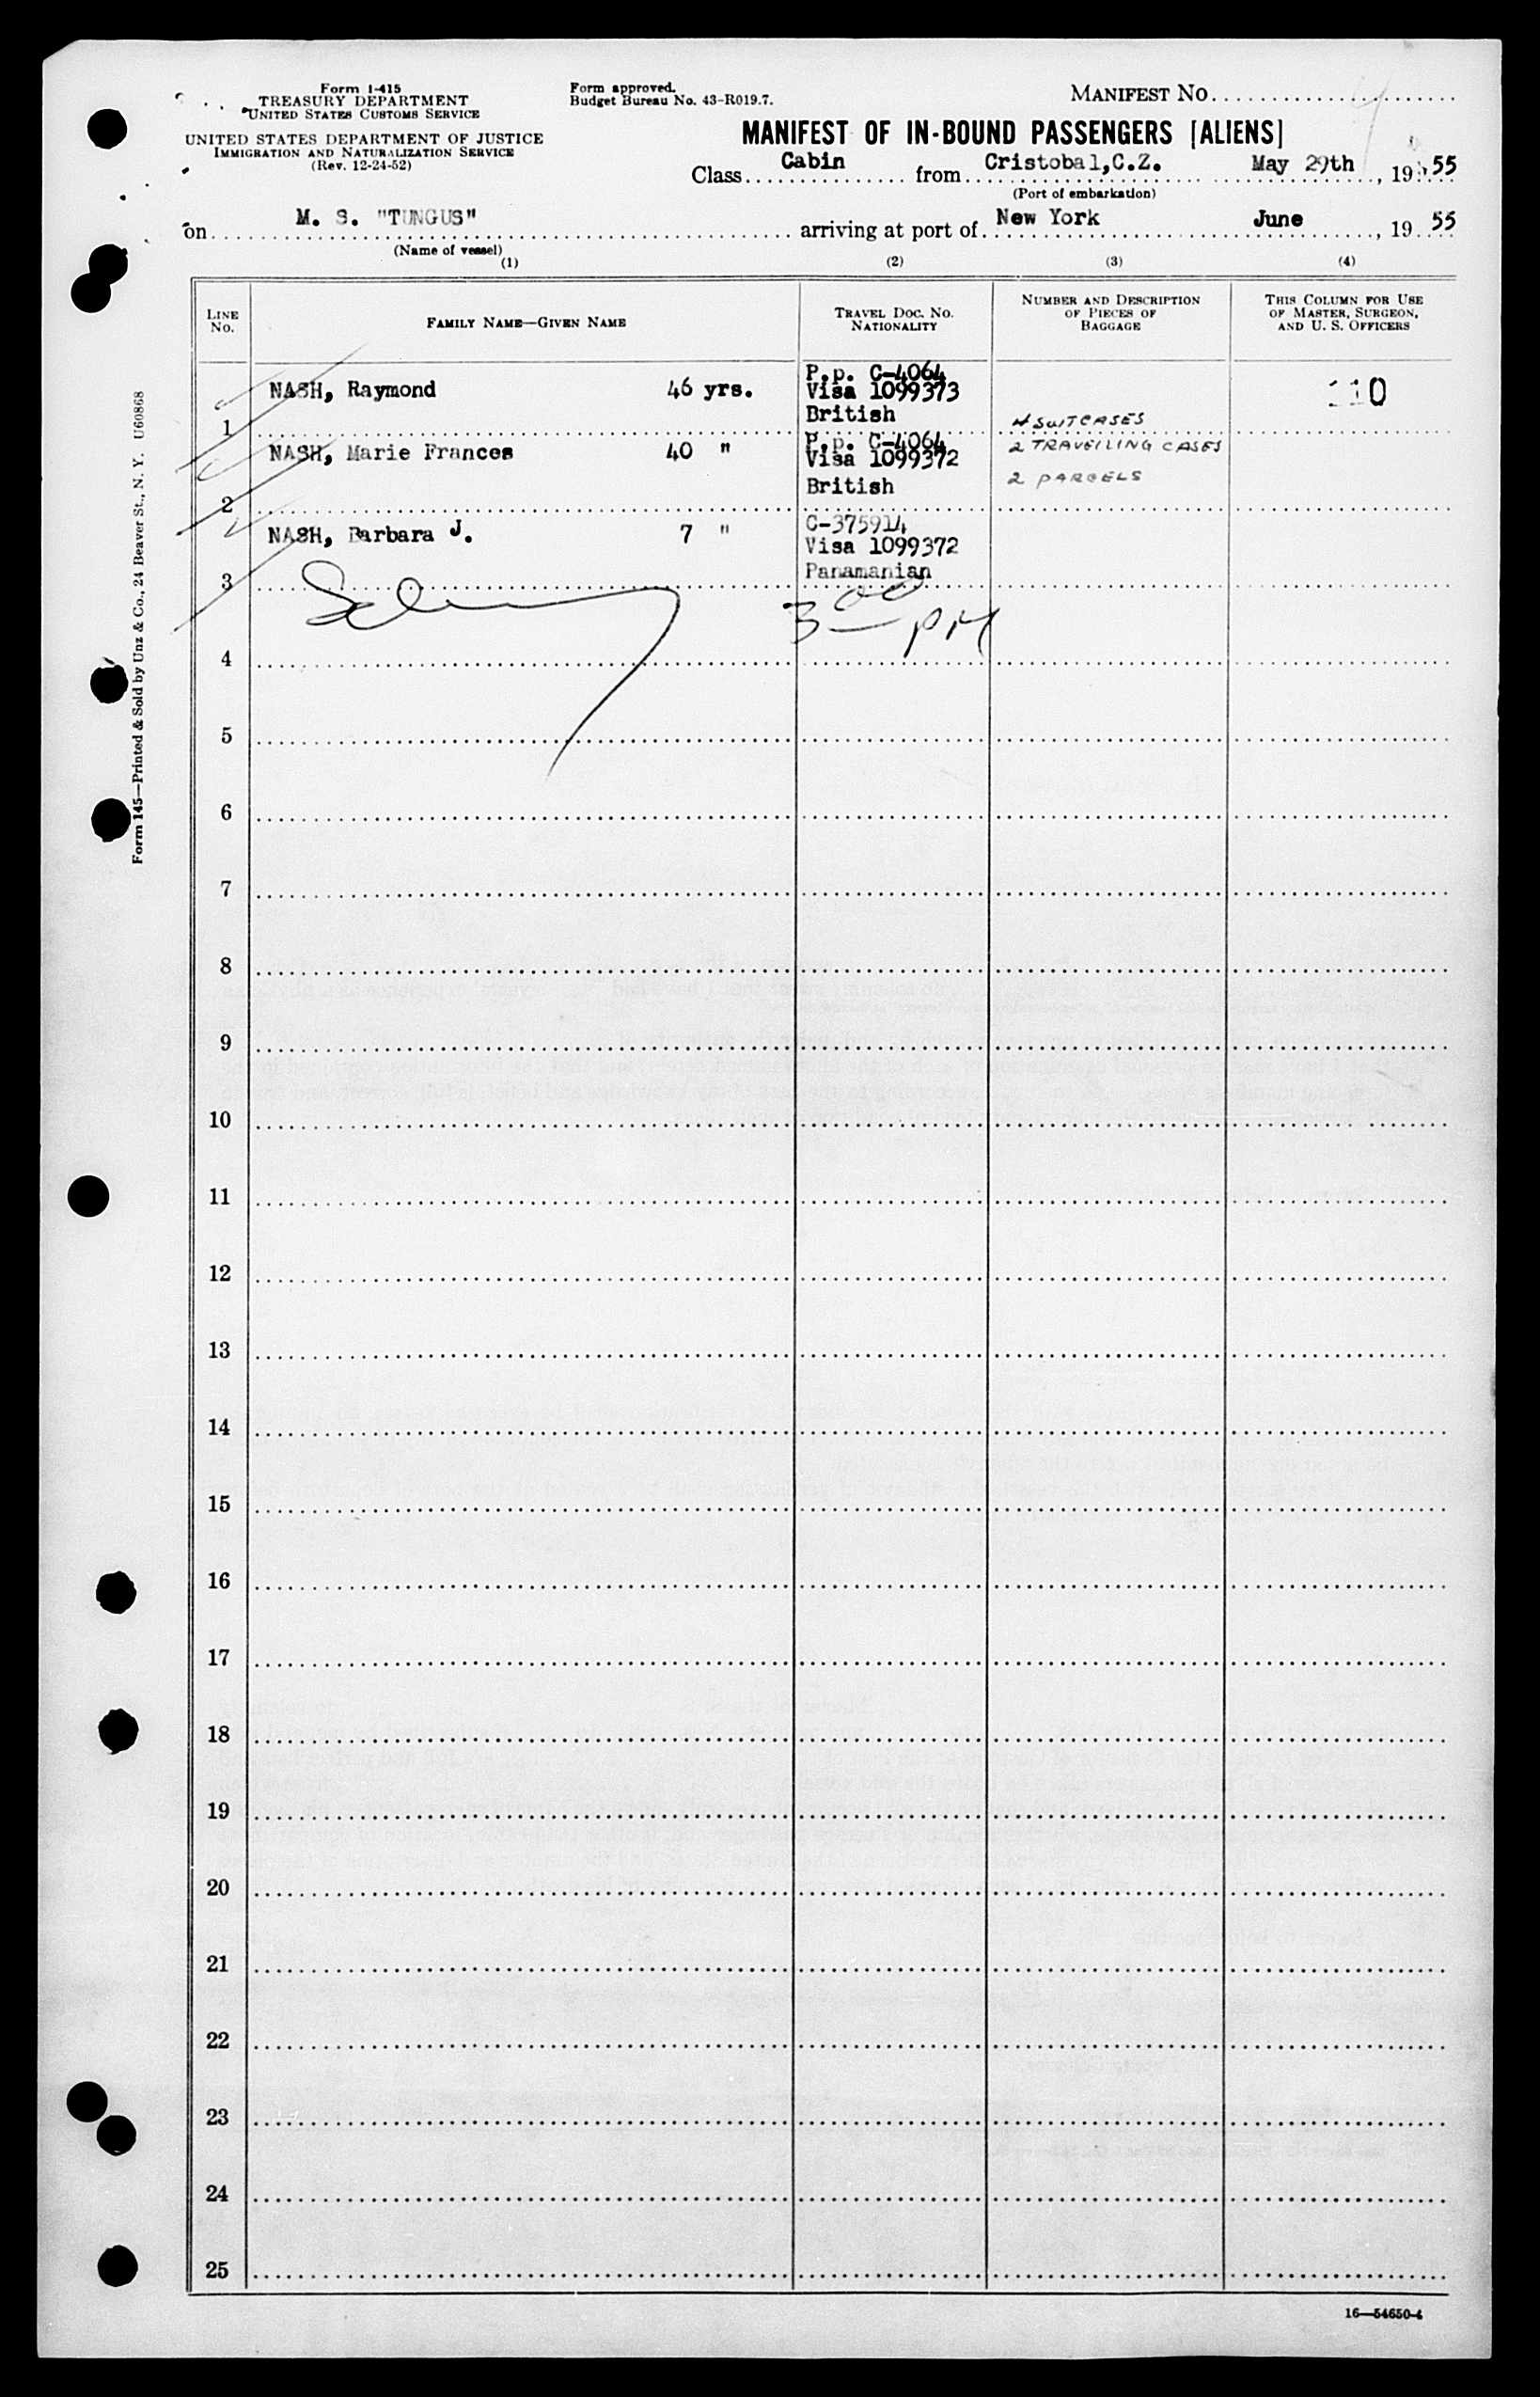 Form I-415
TREASURY DEPARTMENT
UNITED STATES CUSTOMS SERVICE
UNITED STATES DEPARTMENT OF JUSTICE
IMMIGRATION AND NATURALIZATION SERVICE
(Rev. 12-24-52)
Form approved.
Budget Bureau No. 43-R019.7.
MANIFEST NO.
MANIFEST OF IN-BOUND PASSENGERS [ALIENS]
Class Cabin from Cristobal,C.Z. May 29th, 1955
(Port of embarkation)
on M. S. "TUNGUS" arriving at port of New York June, 1955
(Name of vessel)
(1) (2) (3) (4)
LINE NO.
FAMILY NAME—GIVEN NAME
TRAVEL DOC. NO. NATIONALITY
NUMBER AND DESCRIPTION OF PIECES OF BAGGAGE
THIS COLUMN FOR USE OF MASTER, SURGEON, AND U. S. OFFICERS
P.p. C-4064
NASH, Raymond 46 yrs. Visa 1099373 110
1 British 4 SUITCASES
P.p. C-4064 2 TRAVELLING CASES
NASH, Marie Frances 40 " Visa 1099372
2 British 2 PARCELS
C-375914
NASH, Barbara J. 7 " Visa 1099372
3 Panamanian
3 00 PM
4
5
6
7
8
9
10
11
12
13
14
15
16
17
18
19
20
21
22
23
24
25
16—54650-4
Form 145—Printed & Sold by Unz & Co., 24 Beaver St., N. Y. U60868